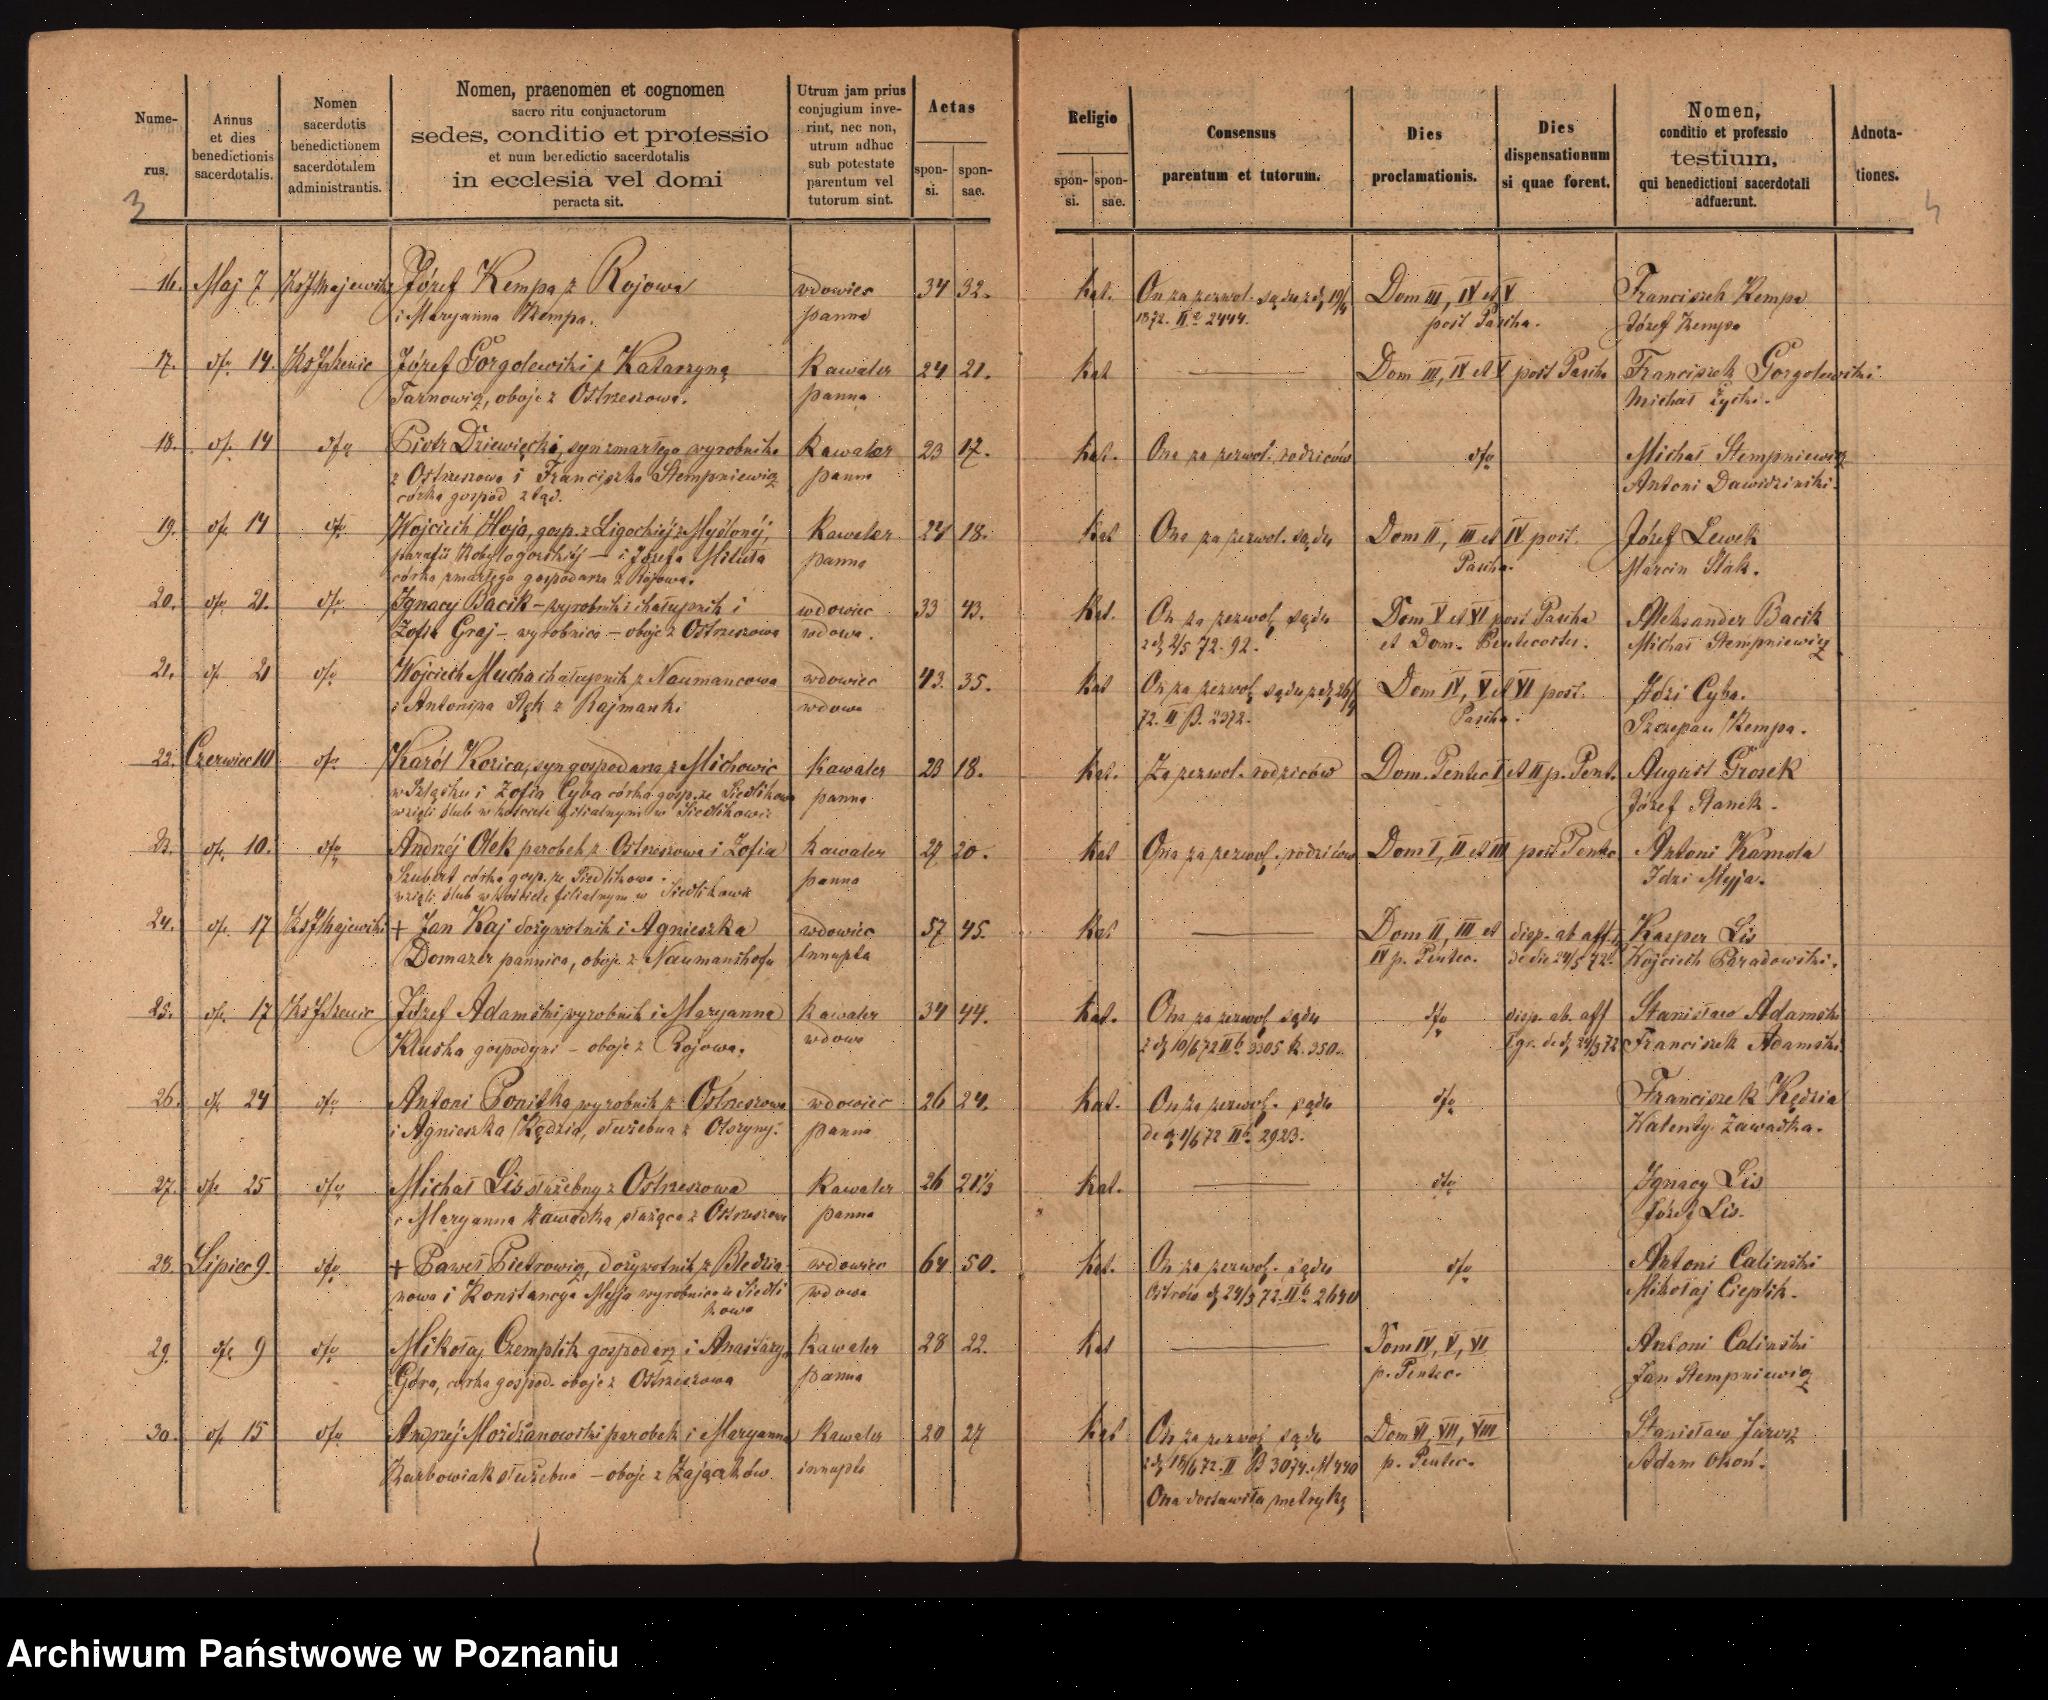 3
Nume-
rus.
Annus
et dies
benedictionis
sacerdotalis.
Nomen
sacerdotis
benedictionem
sacerdotalem
administrantis.
Nomen, praenomen et cognomen
sacro ritu conjunctorum
sedes, conditio et professio
et num benedictio sacerdotalis
in ecclesia vel domi
peracta sit.
Utrum jam prius
conjugium inve-
rint, nec non,
utrum adhuc
sub potestate
parentum vel
tutorum sint.
Aetas
spon-
si.
spon-
sae.
Religio
spon-
si.
spon-
sae.
Consensus
parentum et tutorum.
Dies
proclamationis.
Dies
dispensationum
si quae forent.
Nomen,
conditio et professio
testium,
qui benedictioni sacerdotali
adfuerunt.
Adnota-
tiones.
16. Maj 7 Józef Kempa z Rojowa wdowiec 34 32. kat. On za zezwol. sądu z d. 19/4 Dom III, IV et V Franciszek Kempa
i Maryanna Kempa. panna 1872. 2444. post Pascha. Józef Kempa
17. dto 14. Józef Gorgolewski z Katarzyną Kawaler 24 21. kat Dom III, IV et V post Pascha Franciszek Gorgolewski
Tarnowicz, oboje z Ostrzeszowa. panna Michał Zycki.
18. dto 14 dto Piotr Dziewięcki, syn zmarłego wyrobnika Kawaler 23 17. kat. Ona za zezwol. rodziców dto Michał Stempniewicz
z Ostrzeszowa i Franciszka Stempniewicz panna Antoni Dawidziński.
córka gospod. ztąd.
19. dto 14 dto Wojciech Hoja, gosp. z Ligockiej z Myślonij, Kawaler 24 18. kat Ona za zezwol. sądu Dom II, III et IV post. Józef Lewek
parafii Kobylogorskiej — i Józefa Mikuła panna Pascha. Marcin Ślak.
córka zmarłego gospodarza z Rojowa.
20. dto 21. dto Ignacy Bacik – wyrobnik i chałupnik i wdowiec 33 43. kat. On za zezwol. sądu Dom V et VI post Pascha Aleksander Bacik
Zofia Graj – wyrobnica – oboje z Ostrzeszowa wdowa. z d. 2/5 72. 92. et Dom. Pentecostes. Michał Stempniewicz
21. dto 21 dto Wojciech Mucha chałupnik z Naumancowa wdowiec 43. 35. kat On za zezwol. sądu z d. 26/4 Dom IV, V et VI post. Idzi Cyba.
i Antonina Slęk z Rajmanki wdowa 72. II B. 2372. Pascha. Szczepan Kempa.
22. Czerwiec 10 dto Karól Kozica, syn gospodarza z Michowic Kawaler 23 18. kat. Za zezwol. rodziców Dom. Pentec I et II p. Pent. August Grosek
w Szląsku i Zofia Cyba córka gosp. ze Siedlikowa panna Józef Stanek.
wzięli ślub w kościele filialnym w Siedlikowie
23. dto 10. dto Andrzéj Olek parobek z Ostrzeszowa i Zofia Kawaler 24 20. kat Ona za zezwol. rodziców Dom I, II et III post Pentec Antoni Kamola
Szubert córka gosp. ze Siedlikowa. panna Idzi Myja.
wzięli ślub w kościele filialnym w Siedlikowie
24. dto 17 + Jan Kaj dożywotnik i Agnieszka wdowiec 57 45. kat Dom II, III et disp. ab aff. Kasper Lis
Domazer pannica, oboje z Naumanshofu Innupta IV p. Pentec. de die 24/5 72. Wojciech Paradowski.
25. dto 17 Józef Adamski wyrobnik i Maryanna Kawaler 34 44. kat. Ona za zezwol. sądu dto disp. ab. aff Stanisław Adamski
Kluska gospodyni – oboje z Rojowa. wdowa z d. 10/6 72 II 3305 K. 350. I gr. de d. 24/5 72 Franciszek Adamski
26. dto 24 dto Antoni Ponitka wyrobnik z Ostrzeszowa wdowiec 26 24. kat. On za zezwol. sądu dto Franciszek Kędzia
i Agnieszka Kędzia, służebna z Olszyny. panna de d. 1/6 72 II 2923. Walenty Zawadka.
27. dto 25 dto Michał Lis służebny z Ostrzeszowa Kawaler 26 21 1/3 kat. dto Ignacy Lis
i Maryanna Zawadka, służąca z Ostrzeszowa panna Józef Lis.
28. Lipiec 9. dto + Paweł Pietrowicz, dożywotnik z Bledzia- wdowiec 64 50. kat. On za zezwol. sądu dto Antoni Calinski
nowa i Konstancya Myja wyrobnica ze Siedli wdowa Ostrow d. 24/3 72. II 2640 Mikołaj Cieplik.
kowa
29. dto 9 dto Mikołaj Czemplik gospodarz i Anastazya Kawaler 28 22. kat Dom IV, V, VI Antoni Calinski
Góra, córka gospod. oboje z Ostrzeszowa panna p. Pentec. Jan Stempniewicz
30. dto 15 dto Andrzéj Mozdżanowski parobek i Maryanna Kawaler 20 27 kat On za zezwol. sądu Dom VI, VII, VIII Stanisław
Karbowiak służebna – oboje z Zajączków. innupta z d. 18/6 72. II B 3074. M 440 p. Pentec. Adam Okoń.
Ona dostawiła metrykę
Archiwum Państwowe w Poznaniu